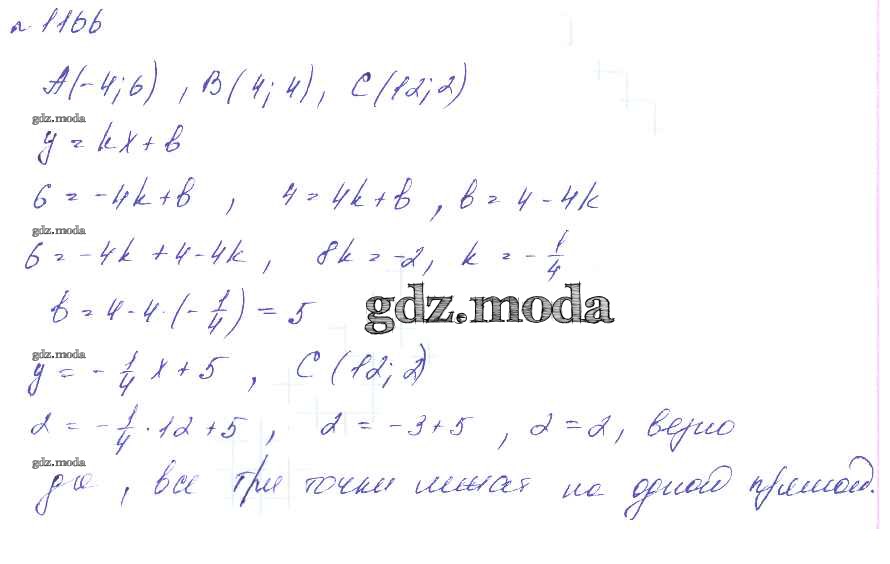 № 1166
A(-4;6) , B(4;4), C(12;2)
gdz.moda
y = kx + b
6 = -4k+b , 4 = 4k+b , b = 4 - 4k
gdz.moda
6 = -4k + 4 - 4k , 8k = -2, k = -1/4
b = 4 - 4·(-1/4) = 5
gdz.moda
gdz.moda
y = -1/4 x + 5 , C(12;2)
2 = -1/4 · 12 + 5 , 2 = -3+5 , 2=2, верно
gdz.moda
да , все три точки лежат на одной прямой.